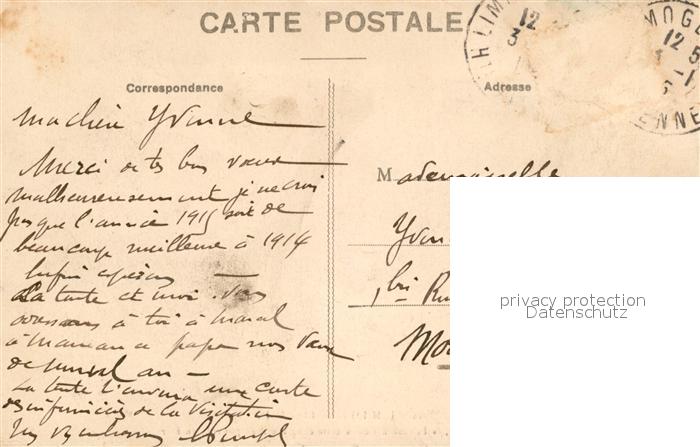 CARTE POSTALE
LIM
12
3
MOGE
12 5
-1
ENNE
Correspondance
Adresse
Ma chère Yvonne
Merci de tes bons voeux
malheureusement je ne crois
pas que l'année 1915 soit de
beaucoup meilleure à 1914
Enfin espérons —
La tante et moi vous
adressons à toi à Marcel
à Maman à papa nos voeux
de nouvel an —
La tante t'enverra une carte
des infirmières de la Visitation
Mademoiselle
Yvon
1 bis Ru
Mo
privacy protection
Datenschutz